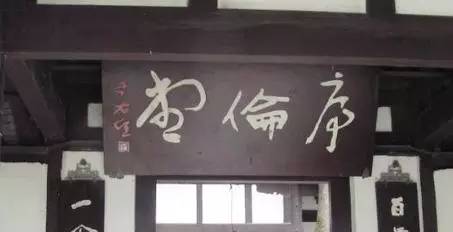 序倫堂
于右任
百
一